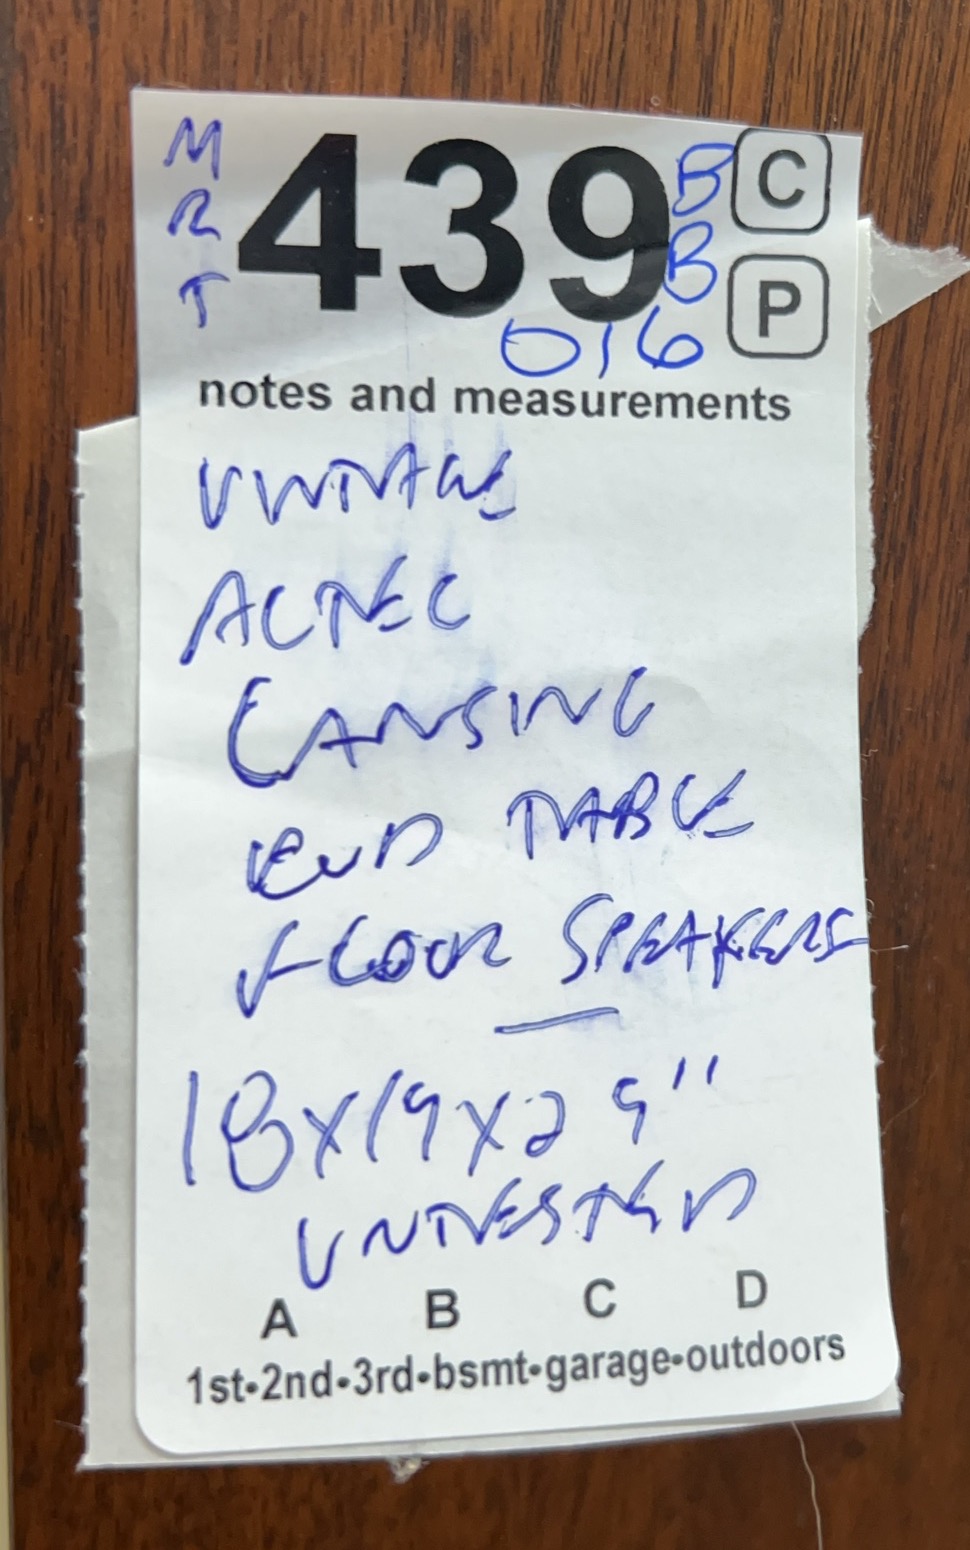 M
R
T
439
B
B
016
C
P
notes and measurements
VINTAGE
ALTEC
LANSING
END TABLE
FLOOR SPEAKERS
18x19x29"
UNTESTED
A B C D
1st•2nd•3rd•bsmt•garage•outdoors